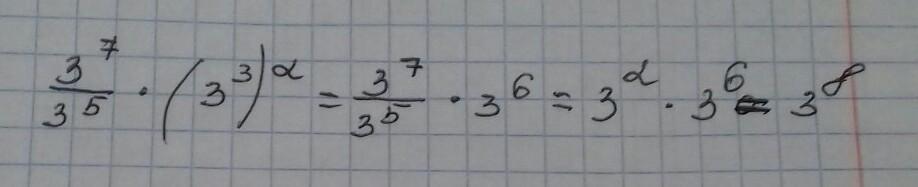 3^7/3^5 · (3^3)^2 = 3^7/3^5 · 3^6 = 3^2 · 3^6 = 3^8